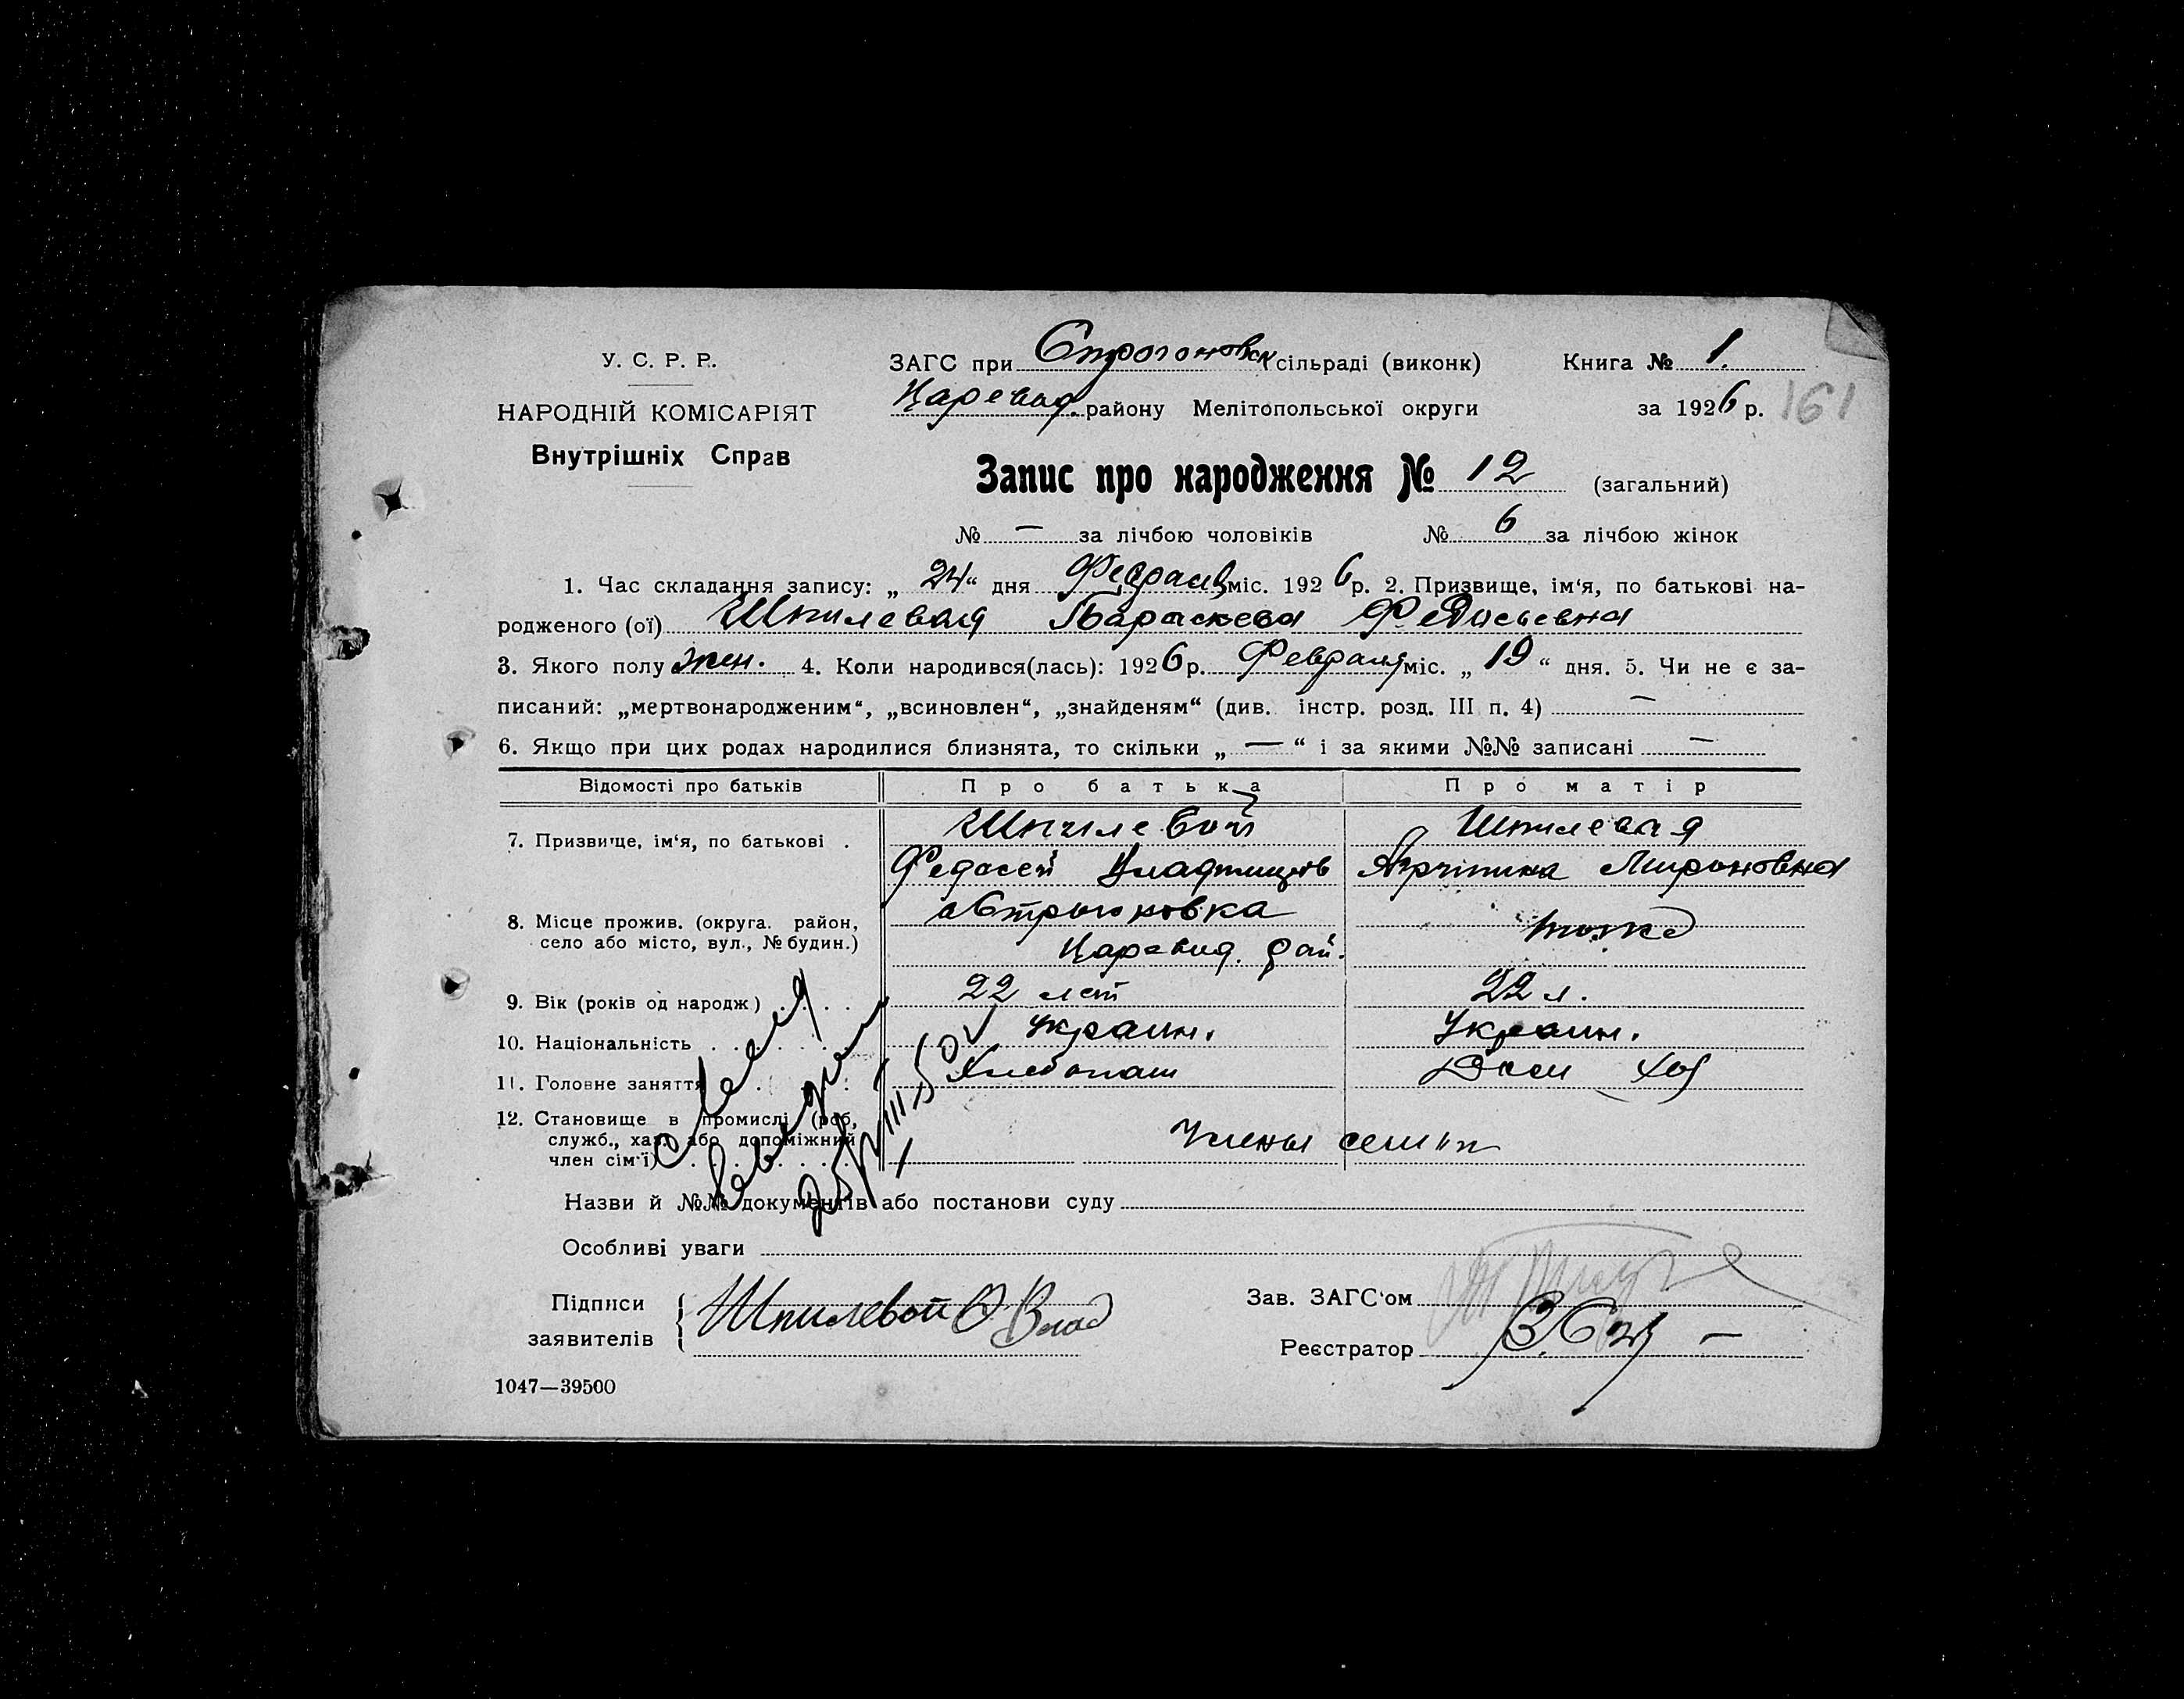 У. С. Р. Р.
НАРОДНІЙ КОМІСАРІЯТ
Внутрішніх Справ
ЗАГС при Строгоновск сільраді (виконк) Книга № 1.
Царевод. району Мелітопольської округи за 1926 р. 161
Запис про народження № 12 (загальний)
№ — за лічбою чоловіків № 6 за лічбою жінок
1. Час складання запису: „ 24 “ дня Февраля міс. 1926 р. 2. Призвище, ім‘я, по батькові на-
родженого (ої) Шпилевая Параскева Федосьевна
3. Якого полу жен. 4. Коли народився(лась): 1926 р. Февраля міс. „ 19 “ дня. 5. Чи не є за-
писаний: „мертвонародженим“, „всиновлен“, „знайденям“ (див. інстр. розд. III п. 4) —
6. Якщо при цих родах народилися близнята, то скільки „ — “ і за якими №№ записані —
Відомості про батьків Про батька Про матір
7. Призвище, ім‘я, по батькові . Шпилевой Шпилевая
Федосей Мироновна
8. Місце прожив. (округа. район, село або місто, вул., № будин.) тоже
Царевод. рай.
9. Вік (років од народж) . . . . 22 лет 22 л.
10. Національність Украин. Украин.
11. Головне заняття Хлебопаш Дом хоз
12. Становище в промислі (роб, служб., хаз. або допоміжний член сім‘ї) Члены семьи
Назви й №№ документів або постанови суду
Особливі уваги
Підписи заявителів { Шпилевой Ф. Влад
Зав. ЗАГС‘ом
Реєстратор
1047—39500